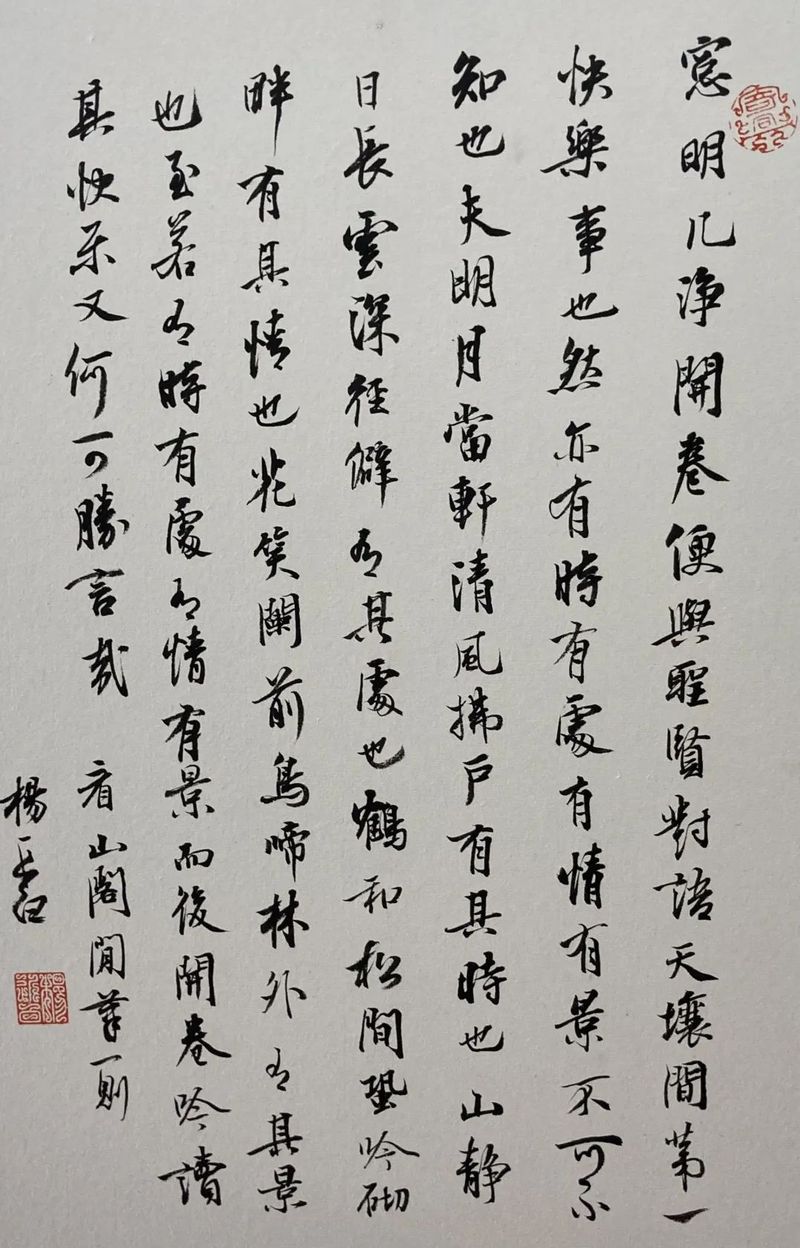 窓明几淨開卷便與聖賢對語天壤間第一
快樂事也然亦有時有處有情有景不可不
知也夫明月當軒清風拂戶有其時也山靜
日長雲深徑僻有其處也鶴和松間蛩吟砌
畔有其情也花笑闌前鳥啼林外有其景
也至若有時有處有情有景而後開卷吟讀
其快樂又何可勝言哉 看山閣閒筆一則
楊